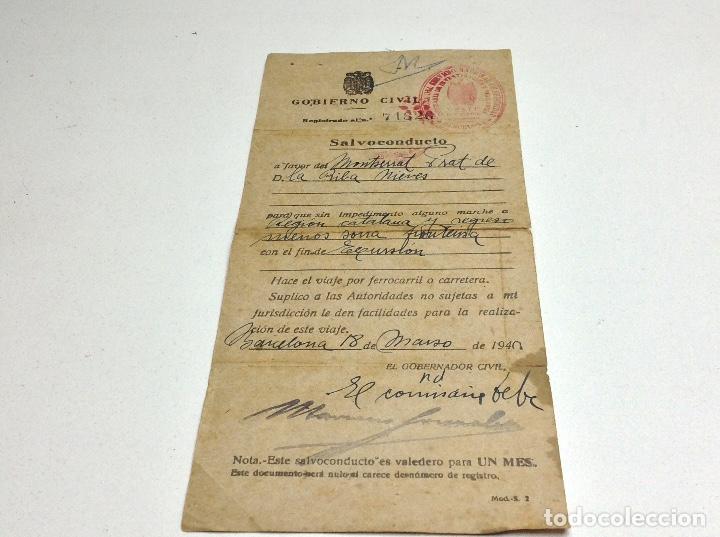 GOBIERNO CIVIL
Registrado al n.° 71826
Salvoconducto
a favor del Montserrat Prat de
D. la Riba Nieves
para que sin impedimento alguno marche a
región catalana y regreso
menos zona fronteriza
con el fin de Excursión
Hace el viaje por ferrocarril o carretera.
Suplico a las Autoridades no sujetas a mi
jurisdicción le den facilidades para la realiza-
ción de este viaje.
Barcelona 18 de Marzo de 194
EL GOBERNADOR CIVIL,
El comisario
Nota.-Este salvoconducto es valedero para UN MES.
Este documento será nulo si carece de número de registro.
Mod.-S. 2
todocoleccion